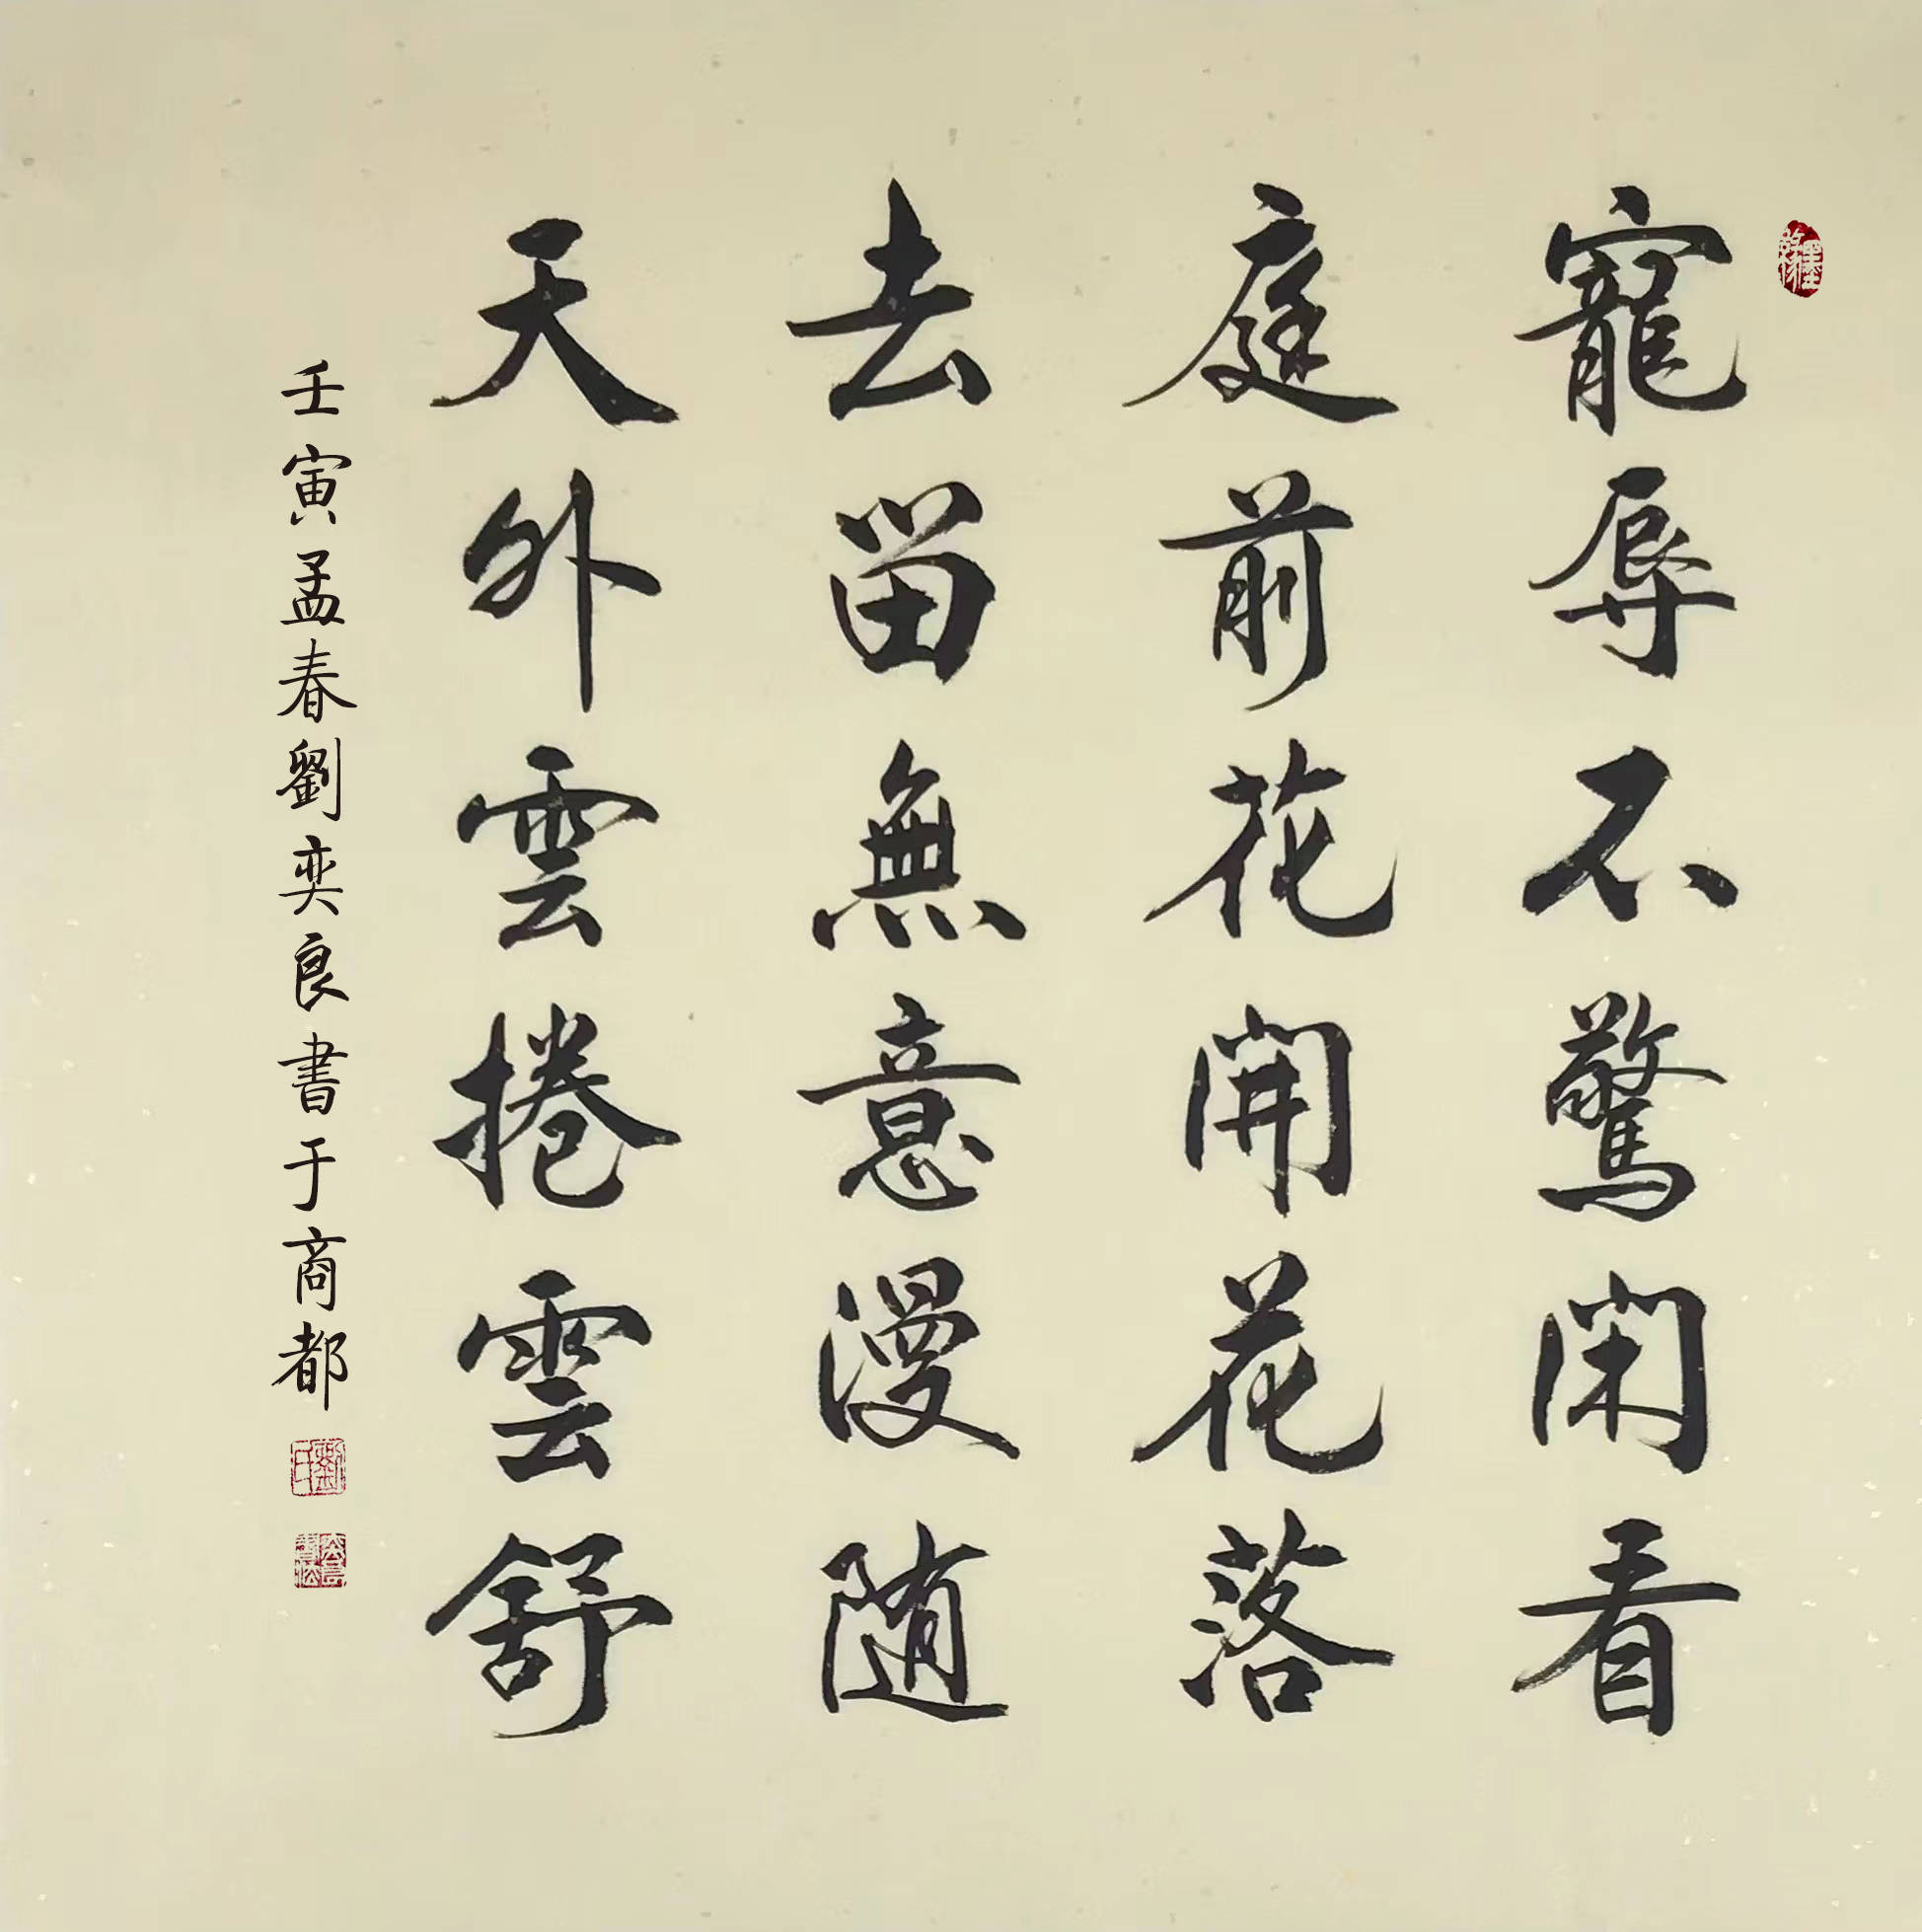 寵辱不驚閑看
庭前花開花落
去留無意漫随
天外雲捲雲舒
壬寅孟春劉奕良書于商都